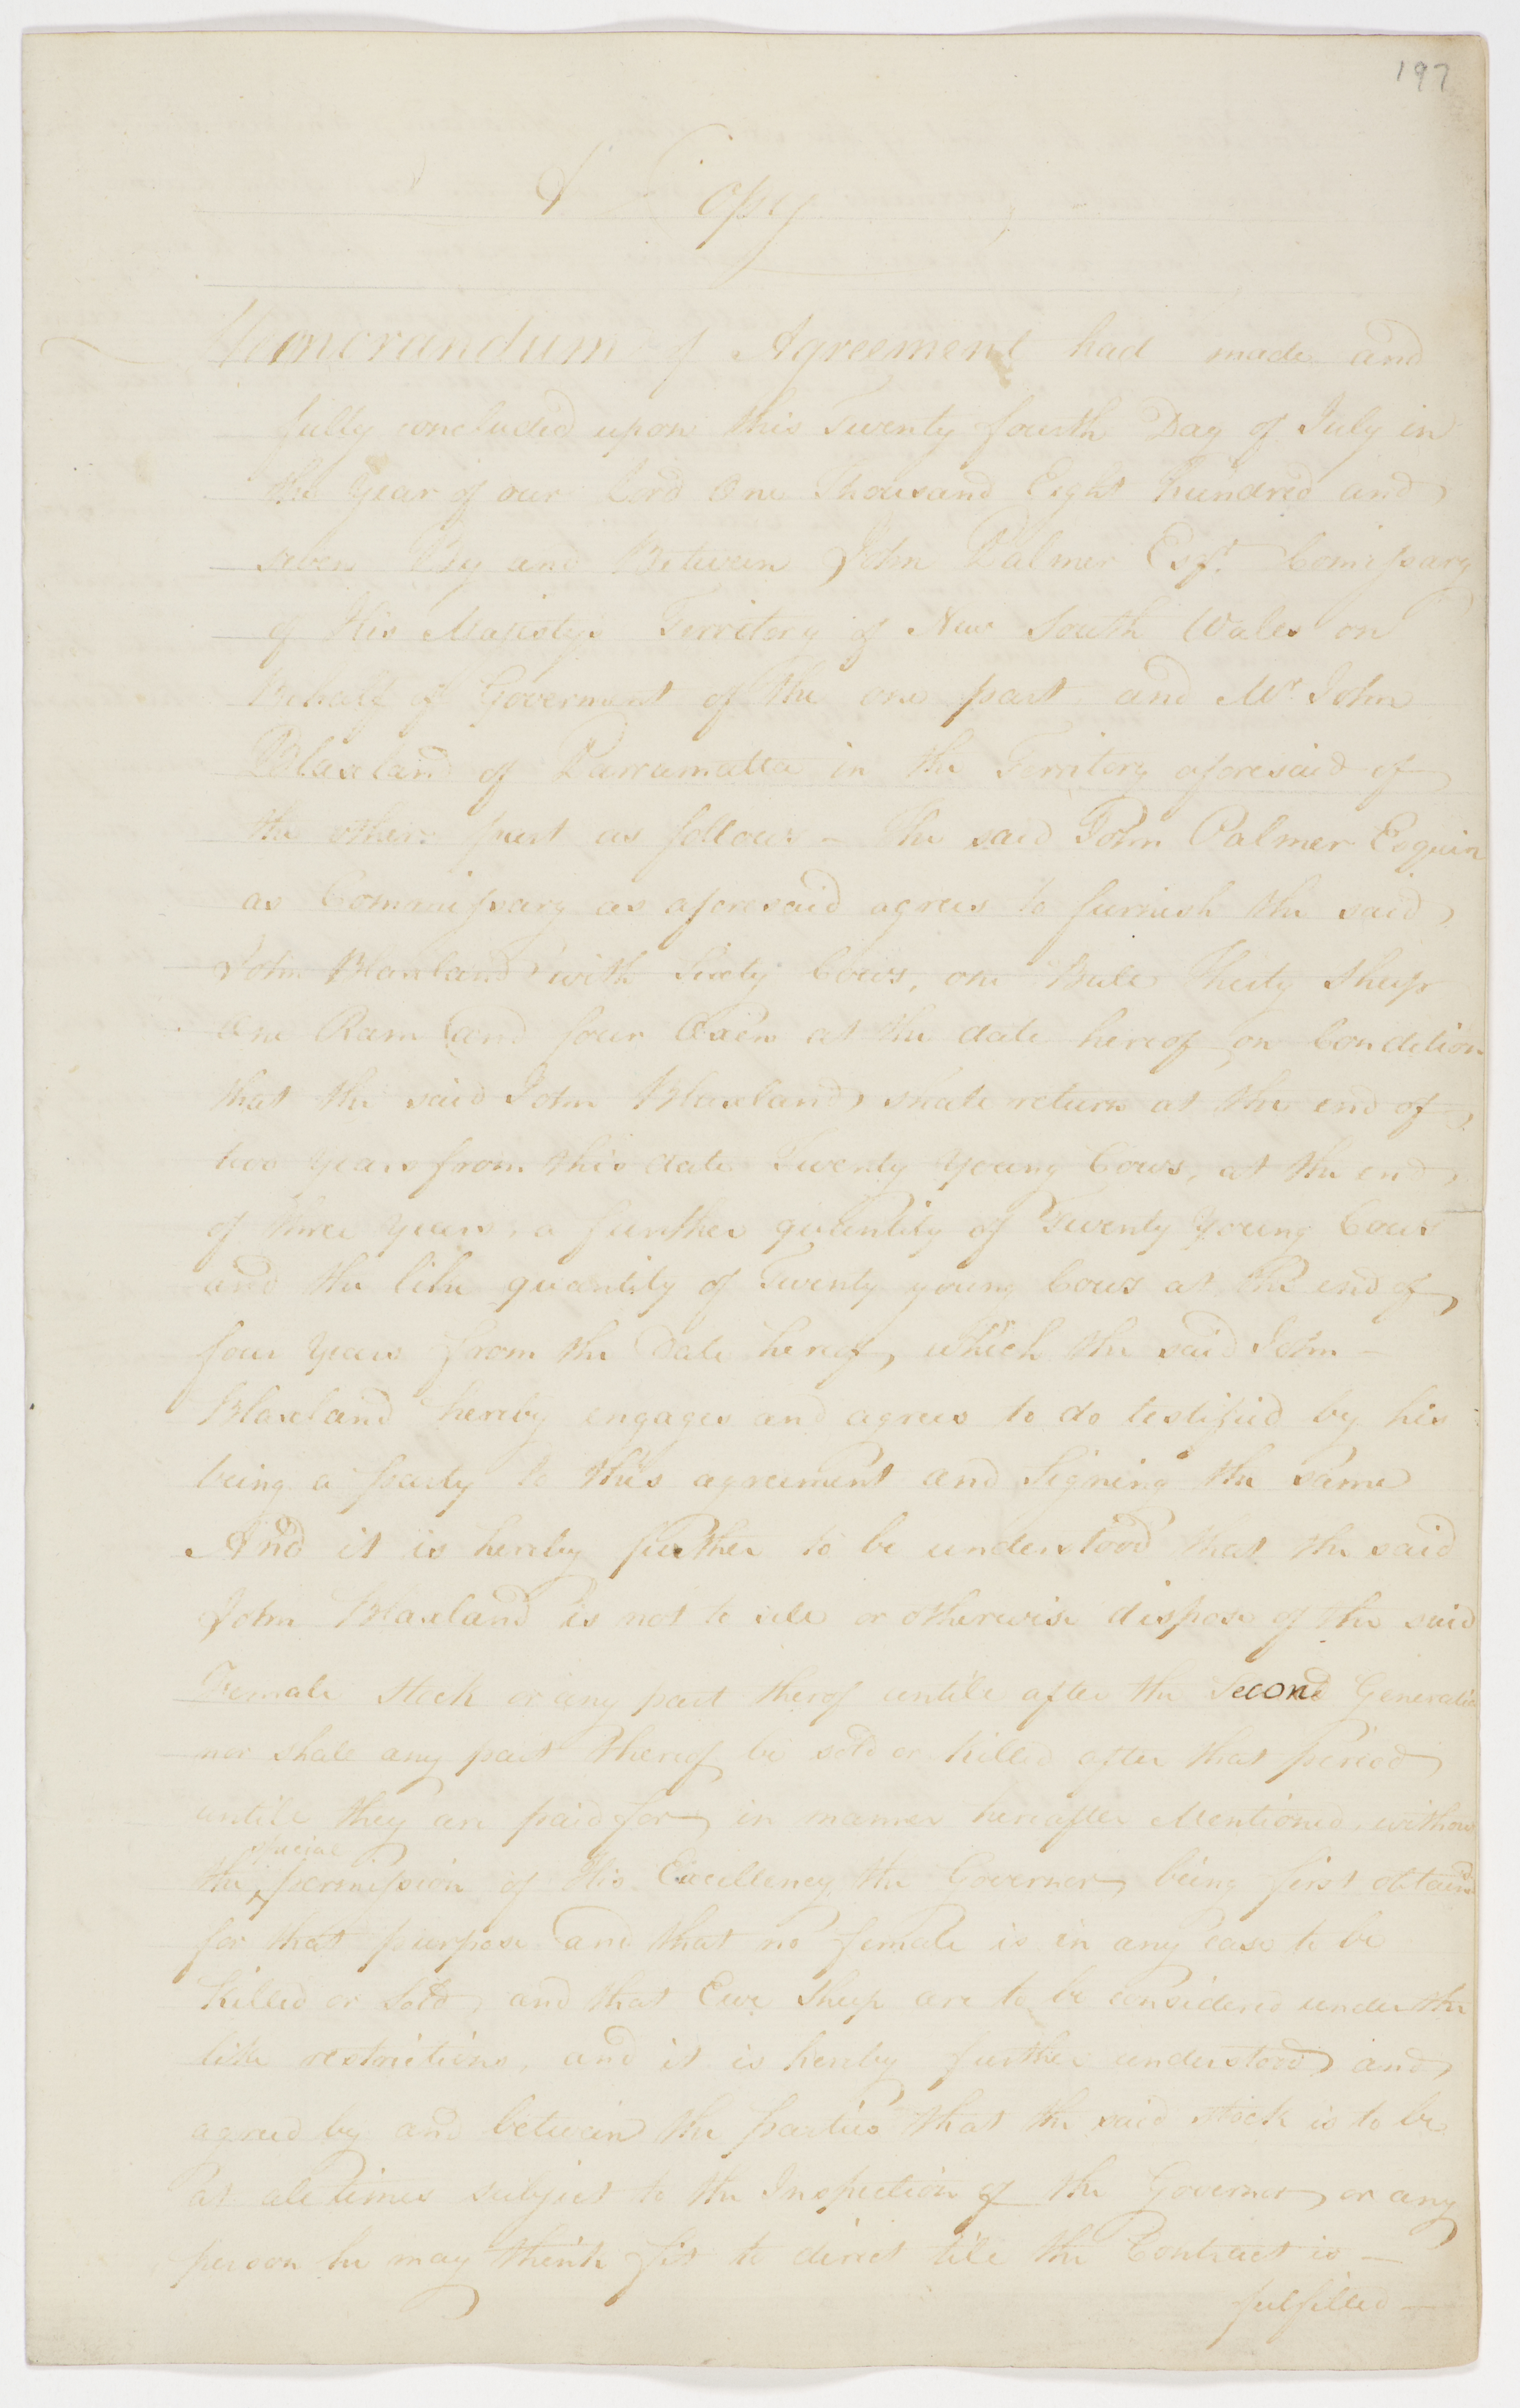 197
A Copy
Memorandum of Agreement had made and
fully concluded upon this Twenty fourth Day of July in
the Year of our Lord One Thousand Eight hundred and
seven By and Between John Palmer Esqr. Comissary
of His Majestys Territory of New South Wales on
Behalf of Goverment of the one part and Mr. John
Blaxland of Parramatta in the Territory aforesaid of
the other part as follows - The said John Palmer Esquire
as Commissary as aforesaid agrees to furnish the said
John Blaxland with Sixty Cows, one Bull Thirty Sheep
One Ram and four Oxen at the date hereof on Condition
that the said John Blaxland shall return at the end of
two years from this date Twenty Young Cows, at the end
of three years, a further quantity of Twenty Young Cows
and the like quantity of Twenty young Cows at the end of
four Years from the Date hereof, which the said John -
Blaxland hereby engages and agrees to do testified by his
being a party to this agreement and Signing the Same
And it is hereby further to be understood that the said
John Blaxland is not to sell or otherwise dispose of the said
Female Stock or any part therof untill after the Second Generation
nor shall any part thereof be sold or killed after that period
untill they are paid for in manner hereafter Mentioned, without
the special permission of His Excellency the Governor being first obtained
for that purpose and that no female is in any case to be
Killed or Sold, and that Ewe Sheep are to be considered under the
like restrictions, and it is hereby further understood and
agreed by and between the parties that the said stock is to be
at all times subject to the Inspection of the Governor or any
person he may think fit to direct till the Contract is -
fulfilled -